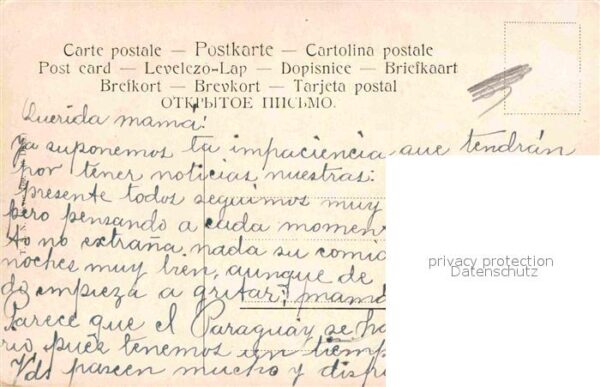 Carte postale — Postkarte — Cartolina postale
Post card — Levelezö-Lap — Dopisnice — Briefkaart
Brefkort — Brevkort — Tarjeta postal
ОТКРЫТОЕ ПИСЬМО.
Querida mamá!
Ya suponemos la impaciencia que tendrán
por tener noticias nuestras:
presente todos seguimos muy
pero pensando a cada momen
no extraña nada su comi
noches muy bien, aunque de
do empieza a gritar: mamá
Parece que el Paraguay se ha
rio pués tenemos un tiemp
Vds paseen mucho y disp
privacy protection
Datenschutz